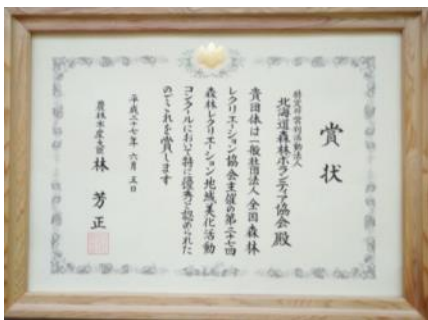 賞状
特定非営利活動法人
北海道森林ボランティア協会殿
貴団体は一般社団法人全国森林
レクリエーション協会主催の第二十七回
森林レクリエーション地域美化活動
コンクールにおいて特に優秀と認められた
のでこれを賞します
平成二十七年六月五日
農林水産大臣 林 芳正